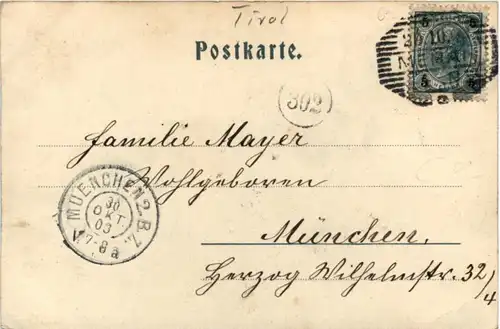 Tirol
Postkarte.
5 5
302
Familie Mayer
Wohlgeboren
München.
Herzog Wilhelmstr. 32/4
MUENCHEN 2 B.Z.
30
OKT
03
V 7-8